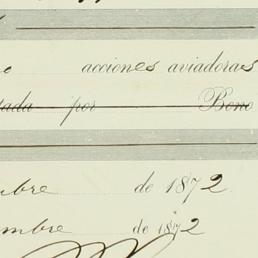 acciones aviadoras
tada por Bono
mbre de 1872
mbre de 1872